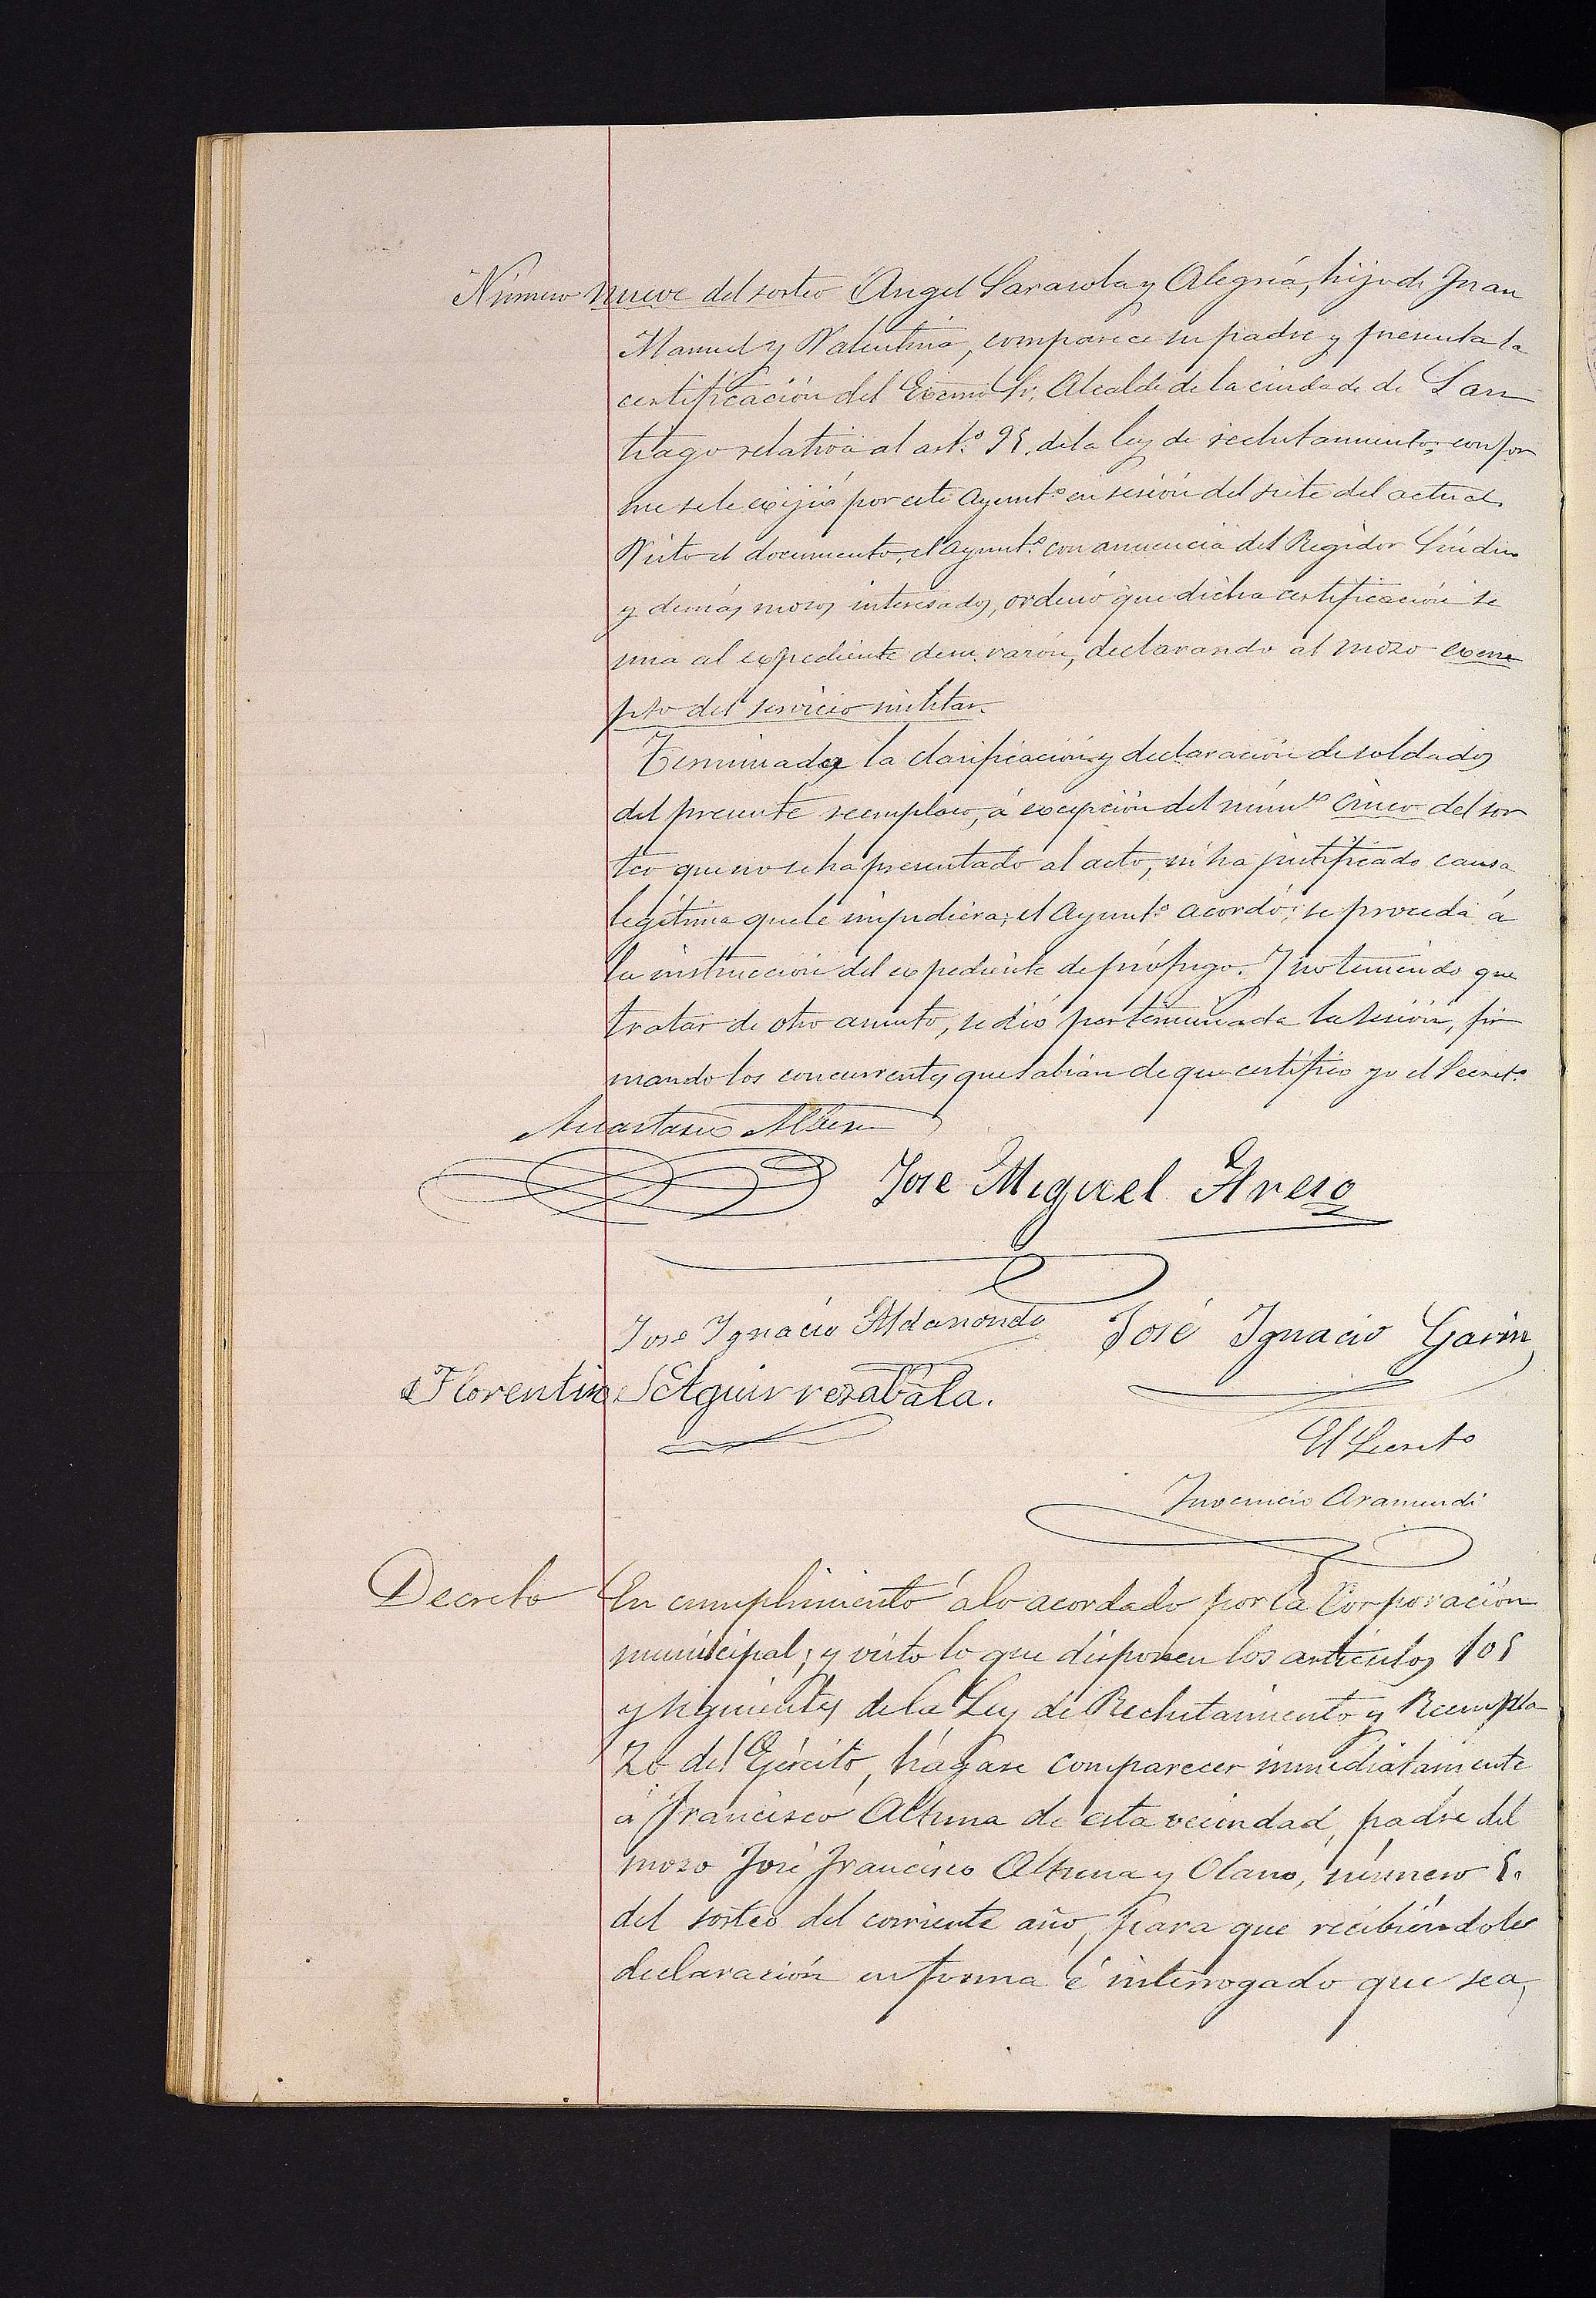 Número nueve del sorteo Angel Sarasola y Alegría, hijo de Juan
Manuel y Valentina, comparece su padre y presenta la
certificación del Excmo Sr. Alcalde de la ciudade de San
tiago relativa al artº 95. de la ley de reclutamiento, confor
me se le exijió por este Ayuntº en sesión del siete del actual.
Visto el documento, el Ayuntº con anuencia del Regidor Síndico
y demás mozos interesados, ordenó que dicha certificación se
una al expediente de su razón, declarando al mozo exem
pto del servicio militar.
Terminada la clasificación y declaración de soldados
del presente reemplazo, á excepción del númº cinco del sor
teo que no se ha presentado al acto, ni ha justificado causa
legítima que le impidiera; el Ayuntº acordó: se proceda á
la instrucción del expediente de prófugo. Y no teniendo que
tratar de otro asunto, se dió por terminada la sesión, fir
mando los concurrentes que sabían de que certifico yo el Secretº
Anastasio Alberdi
José Miguel Areso
José Ignacio Aldanondo José Ignacio Garin
Florentin Aguirrezabala.
El Secretº
Juvencio Aramendi
Decreto En cumplimiento á lo acordado por la Corporación
municipal; y visto lo que disponen los artículos 105
y siguientes de la Ley de Reclutamiento y Reempla
zo del Ejército, hágase comparecer inmediatamente
á Francisco Altuna de esta vecindad, padre del
mozo José Francisco Altuna y Olano, número 5.
del sorteo del corriente año, para que recibiéndole
declaración en forma é interrogado que sea,